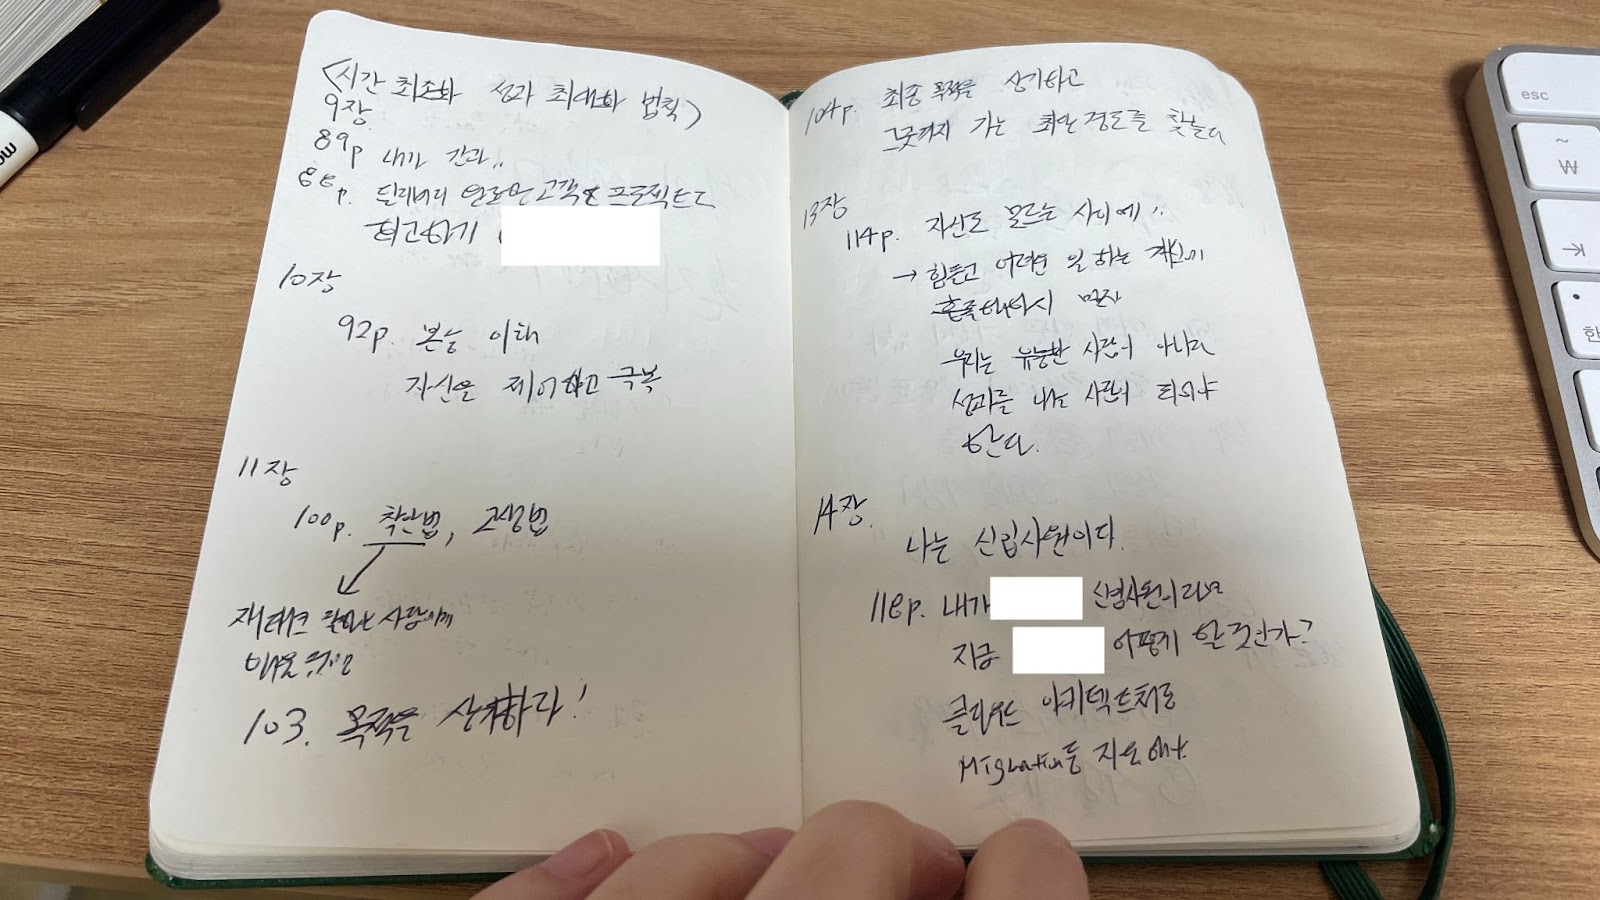 <시간 최소화 성과 최대화 법칙>
9장
89p 내가 간과..
88p. 딜리버리 완료한 고객 & 프로젝트도
회고하기
10장
92p. 본능 이해
자신을 제어하고 극복
11장
100p. 착안법, 고생법
재테크 잘하는 사람에게
배울
103. 목적을 상기하라!
104p. 최종 목적을 상기하고
그곳까지 가는 최단 경로를 찾는다
13장
114p. 자신도 모르는 사이에..
→ 힘들고 어려운 일 하는 자신에
흡족해하지 말자
우리는 유능한 사람이 아니라
성과를 내는 사람이 되어야
한다.
14장.
나는 신입사원이다.
118p. 내가 신입사원이라면
지금 어떻게 할 것인가?
클라우드 아키텍트처로
Migration등 지원해
esc
~
₩
한